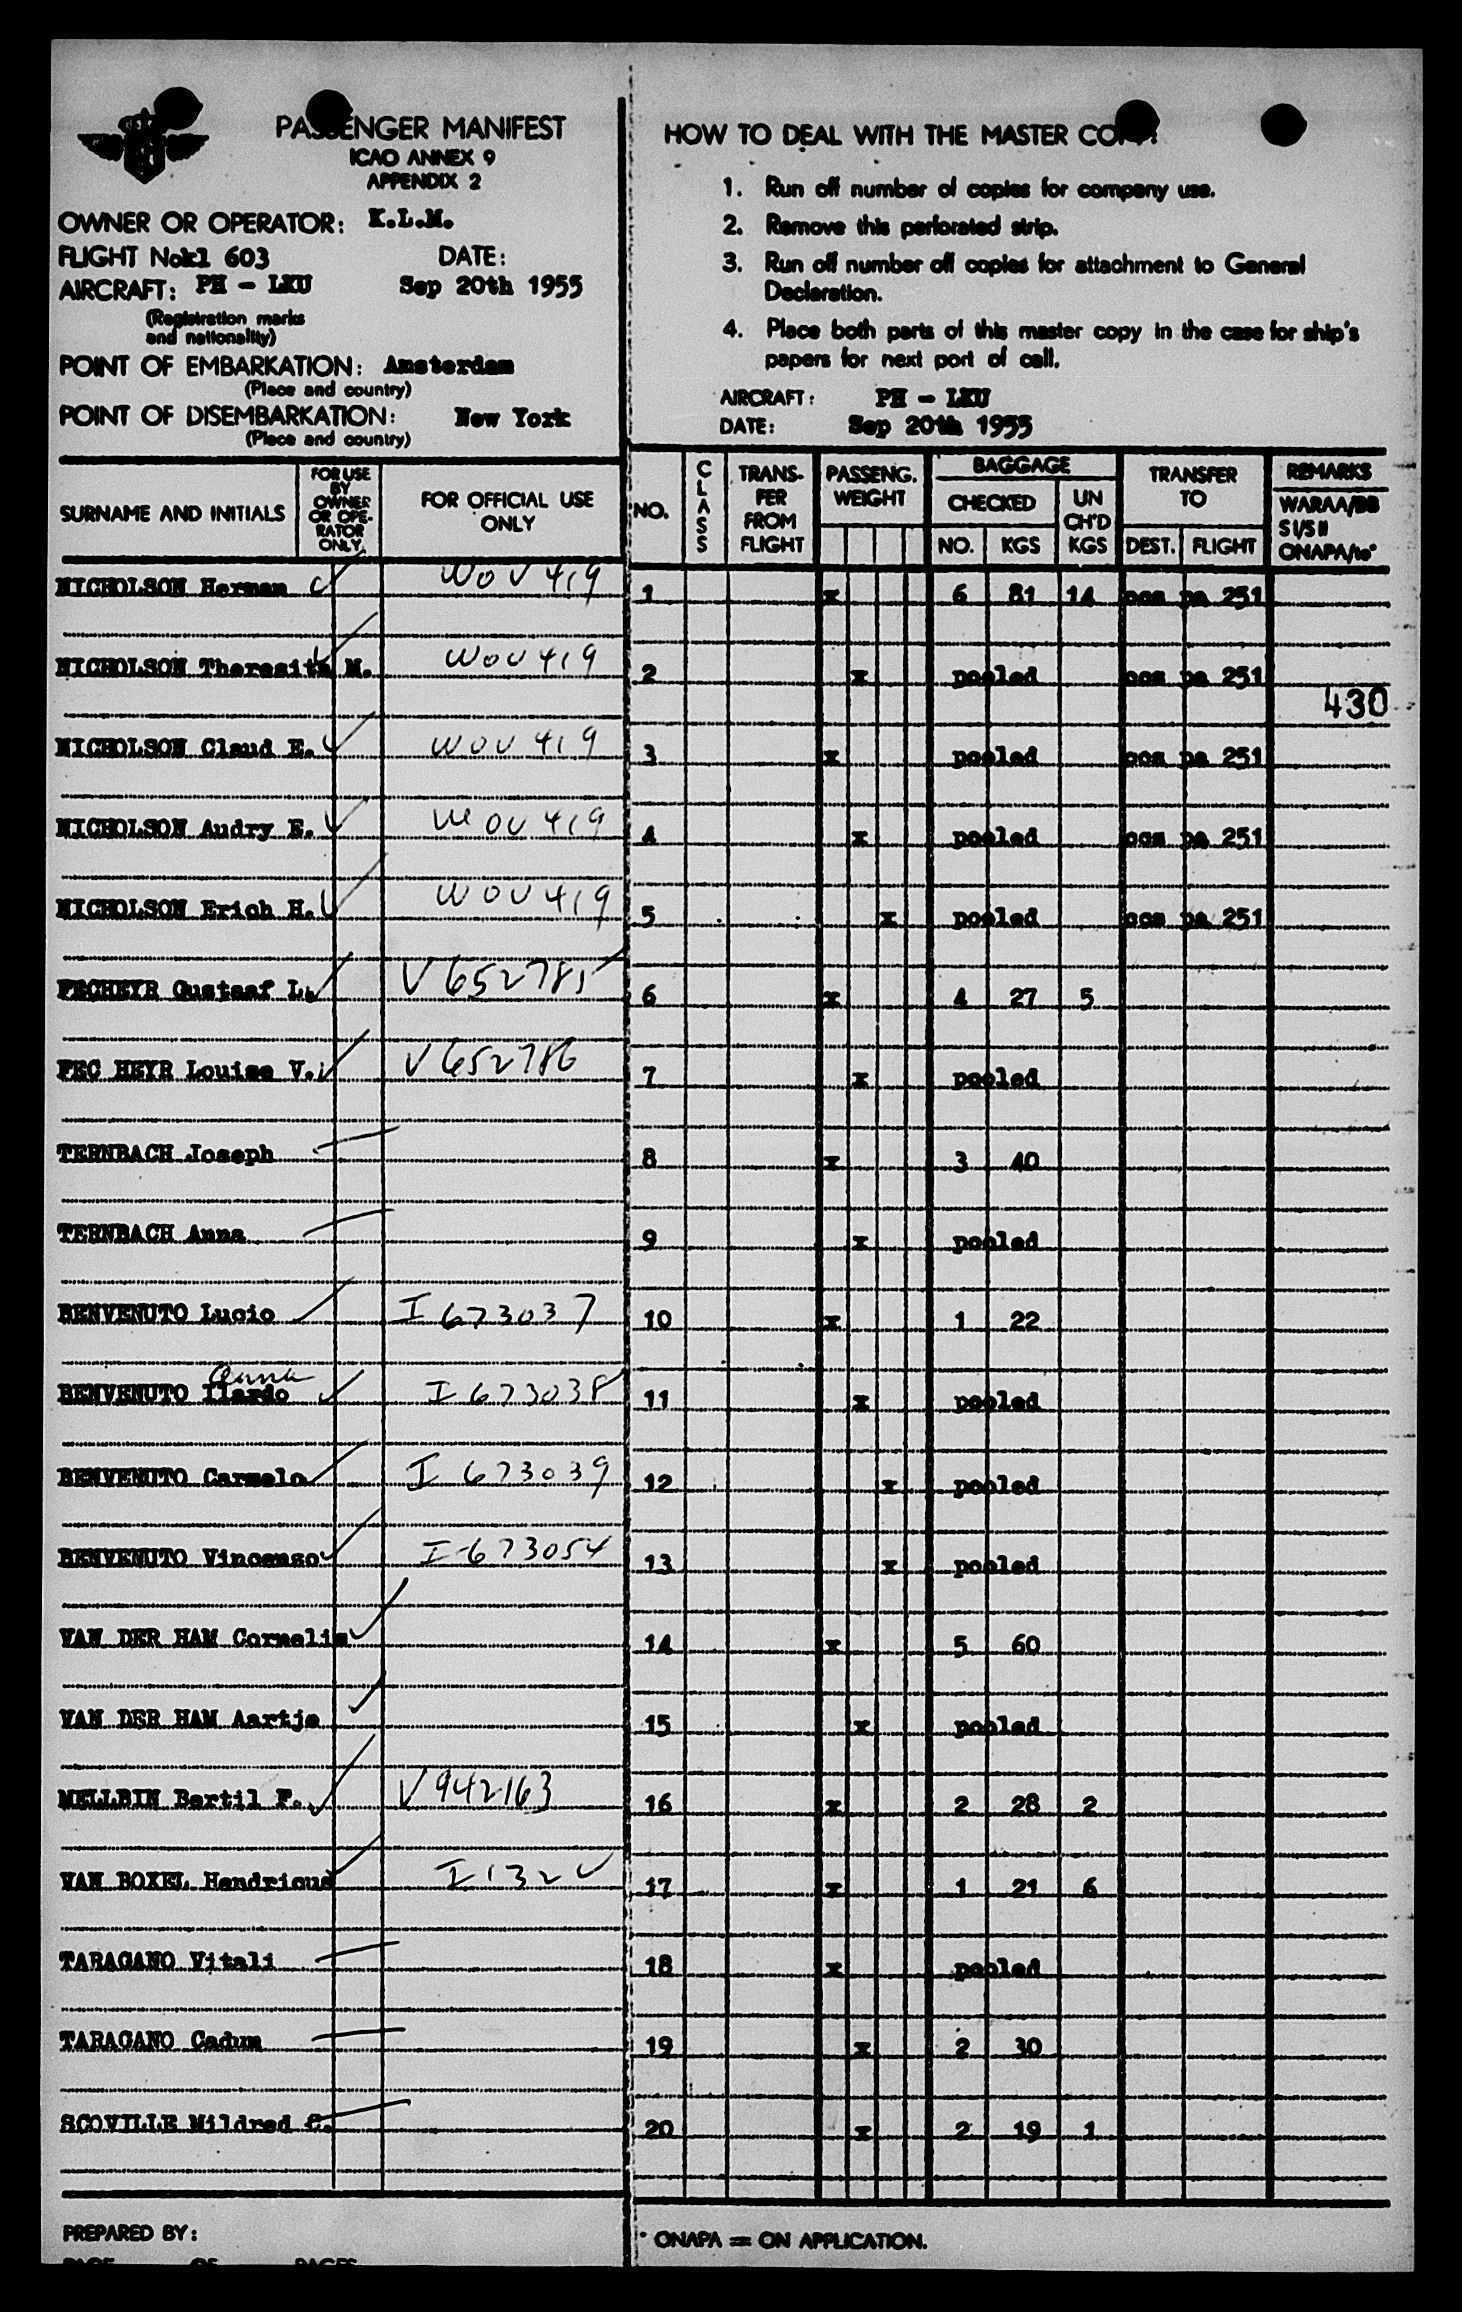 PASSENGER MANIFEST
ICAO ANNEX 9
APPENDIX 2
OWNER OR OPERATOR: K.L.M.
FLIGHT No kl 603 DATE:
AIRCRAFT: PH - LKU Sep 20th 1955
(Registration marks
and nationality)
POINT OF EMBARKATION: Amsterdam
(Place and country)
POINT OF DISEMBARKATION: New York
(Place and country)
HOW TO DEAL WITH THE MASTER COPY:
1. Run off number of copies for company use.
2. Remove this perforated strip.
3. Run off number off copies for attachment to General
Declaration.
4. Place both parts of this master copy in the case for ship's
papers for next port of call.
AIRCRAFT: PH - LKU
DATE: Sep 20th 1955
SURNAME AND INITIALS
FOR USE
BY
OWNER
OR OPE-
RATOR
ONLY
FOR OFFICIAL USE
ONLY
NO.
CLASS
TRANS-
FER
FROM
FLIGHT
PASSENG.
WEIGHT
BAGGAGE
CHECKED
NO. KGS
UN
CH'D
KGS
TRANSFER
TO
DEST. FLIGHT
REMARKS
WARAA/BB
SI/SII
ONAPA/to*
NICHOLSON Herman WOV 419 1 x 6 81 14 ccs pa 251
NICHOLSON Theresita M. WOV 419 2 x pooled ccs pa 251
430
NICHOLSON Claud E. WOV 419 3 x pooled ccs pa 251
NICHOLSON Audry E. WOV 419 4 x pooled ccs pa 251
NICHOLSON Erich H. WOV 419 5 x pooled ccs pa 251
FECHEYR Gustaaf L. V 652785 6 x 4 27 5
FEC HEYR Louise V. V 652786 7 x pooled
TERNBACH Joseph 8 x 3 40
TERNBACH Anna 9 x pooled
BENVENUTO Lucio I 673037 10 x 1 22
Anna
BENVENUTO Ilardo I 673038 11 x pooled
BENVENUTO Carmelo I 673039 12 x pooled
BENVENUTO Vincenzo I-673054 13 x pooled
VAN DER HAM Cornelis 14 x 5 60
VAN DER HAM Aartje 15 x pooled
MELLBIN Bertil F. V 942163 16 x 2 28 2
VAN BOXEL Hendricus I 132 17 x 1 21 6
TARAGANO Vitali 18 x pooled
TARAGANO Cadum 19 x 2 30
SCOVILLE Mildred C. 20 x 2 19 1
PREPARED BY:
PAGE OF PAGES
* ONAPA = ON APPLICATION.